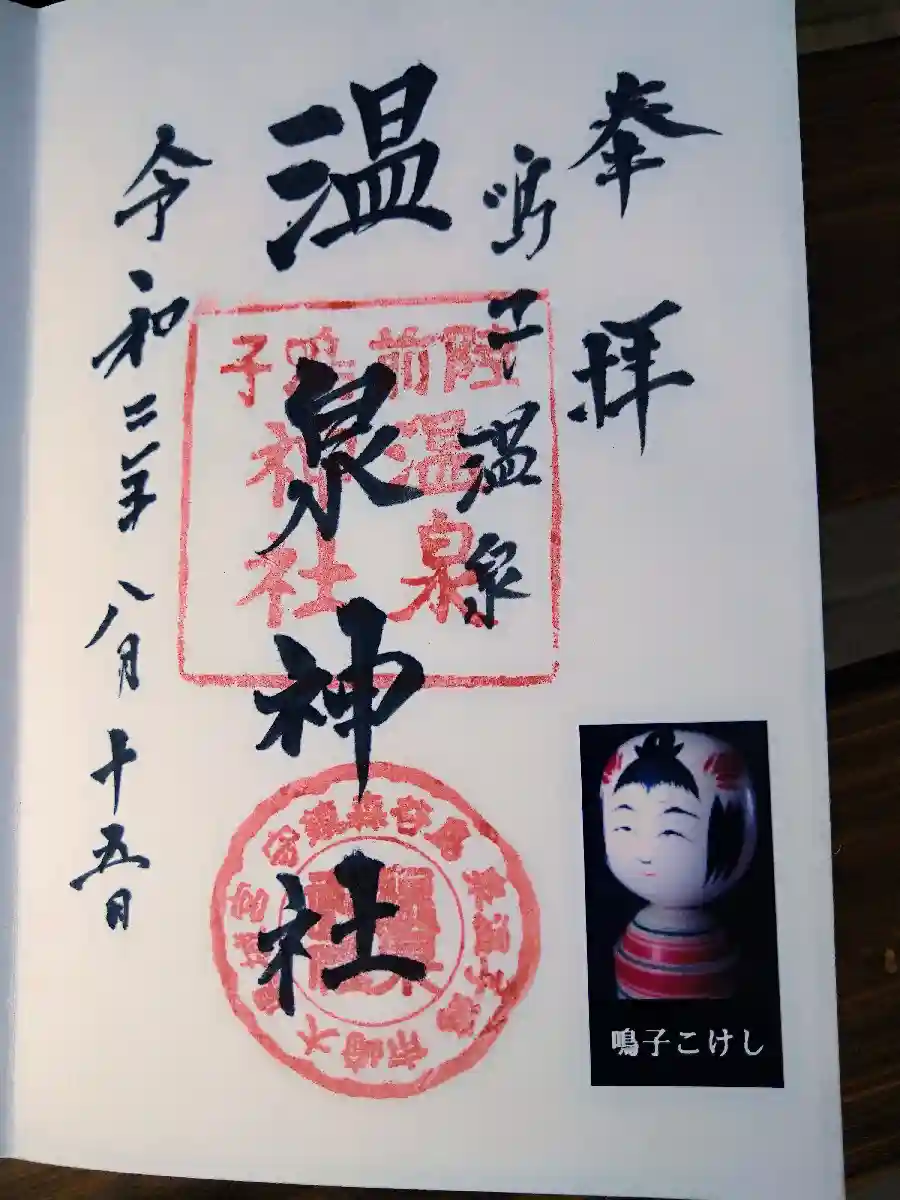 奉拝
鳴子温泉
温泉神社
令和二年八月十五日
陸前
温泉
鳴子
神社
鳴子こけし